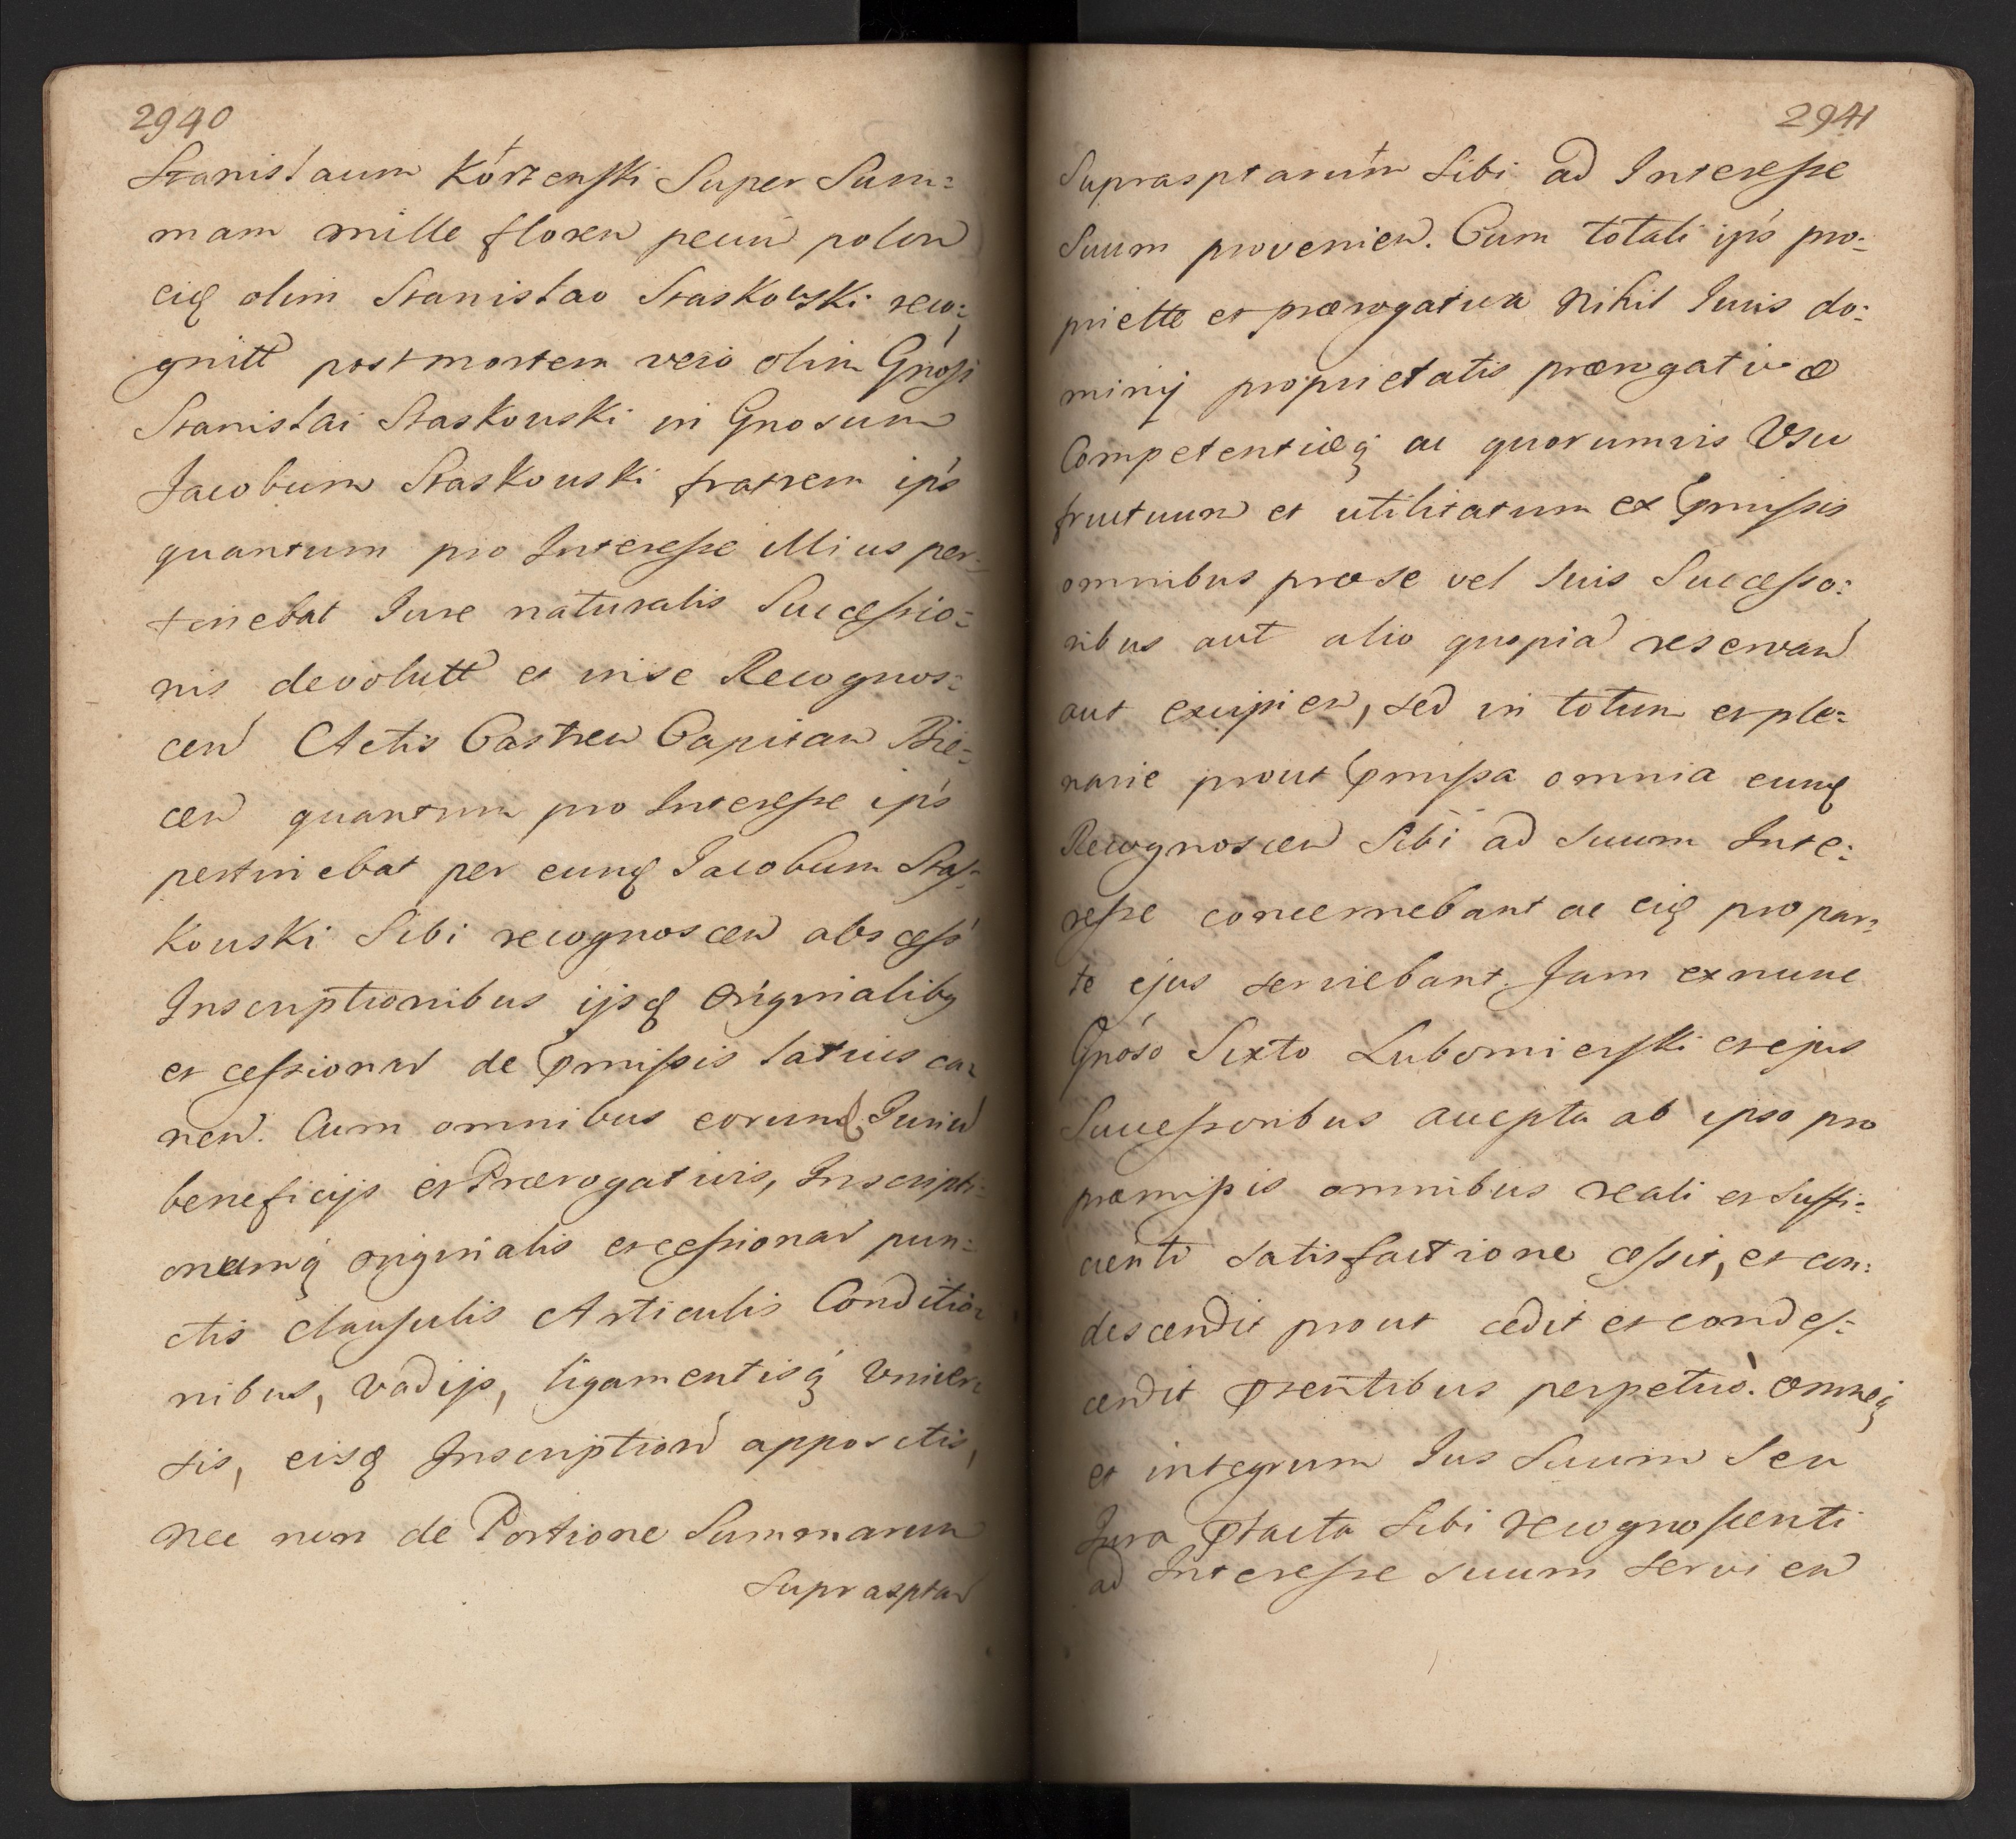 2940
Stanisłaum Kórzenski Super Sum:
mam mille floren pecun polon
eid olim Stanisłao Staskowski reco:
gnitt post mortem vero olim Gnosi
Stanisłai Staskouski in Gnosum
Jacobum Staskouski fratrem ips
quantum pro Interesse illius per:
tinebat Iure naturalis Successio:
nis devolutt et in se Recognos:
cen Actis Castren Capitan Bie:
cen quantum pro Interesse ips
pertinebat per eund Iacobum Stas:
kouski Sibi recognoscen abs cess
Inscriptionibus ijsd originalibq
et cession de pmissis latius ca:
nen. Cum omnibus eorund Juriu
beneficijs et Prærogatiuis, Inscripti:
onumq originalis et cessionar pun:
ctis clausulis Articulis Conditio:
nibus, vadijs, ligamentisq Vniver:
sis, eisd Inscription appositis,
nec non de Portione Summarum
Suprasptar
2941
Supraspta rum Sibi ad Interesse
Suum provenien. Cum totali ips pro:
priette et prærogatiua nihil Iuris do:
minij proprietatis prærogativæ
Competentiæq ac quorumvis Vsu
fructuum et utilitatum ex pmissis
omnibus pro se vel suis Successo:
ribus aut alio quopia reservan
aut excipien, sed in totum et ple:
narie prout pmissa omnia eund
Recognoscen Sibi ad suum Inte:
resse concernebant ac eid pro par:
te ejus serviebant. Jam ex nunc
Gnoso Sixto Lubomierski et ejus
Successoribus accepta ab ipso pro
præmissis omnibus reali et suffi:
cienti satisfactione cessit, et con:
descendit prout cedit et condes:
cendit psentibus perpetuò. omneq
et integrum Ius Suum Seu
Jura ptacta Sibi recognoscenti
ad Interesse suum servien